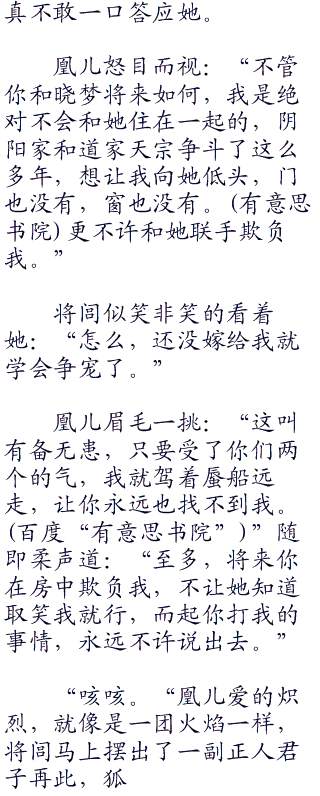 真不敢一口答应她。
凰儿怒目而视：“不管
你和晓梦将来如何，我是绝
对不会和她住在一起的，阴
阳家和道家天宗争斗了这么
多年，想让我向她低头，门
也没有，窗也没有。(有意思
书院)更不许和她联手欺负
我。”
将闾似笑非笑的看着
她：“怎么，还没嫁给我就
学会争宠了。”
凰儿眉毛一挑：“这叫
有备无患，只要受了你们两
个的气，我就驾着蜃船远
走，让你永远也找不到我。
(百度“有意思书院”)”随
即柔声道：“至多，将来你
在房中欺负我，不让她知道
取笑我就行，而起你打我的
事情，永远不许说出去。”
“咳咳。“凰儿爱的炽
烈，就像是一团火焰一样，
将闾马上摆出了一副正人君
子再此，狐